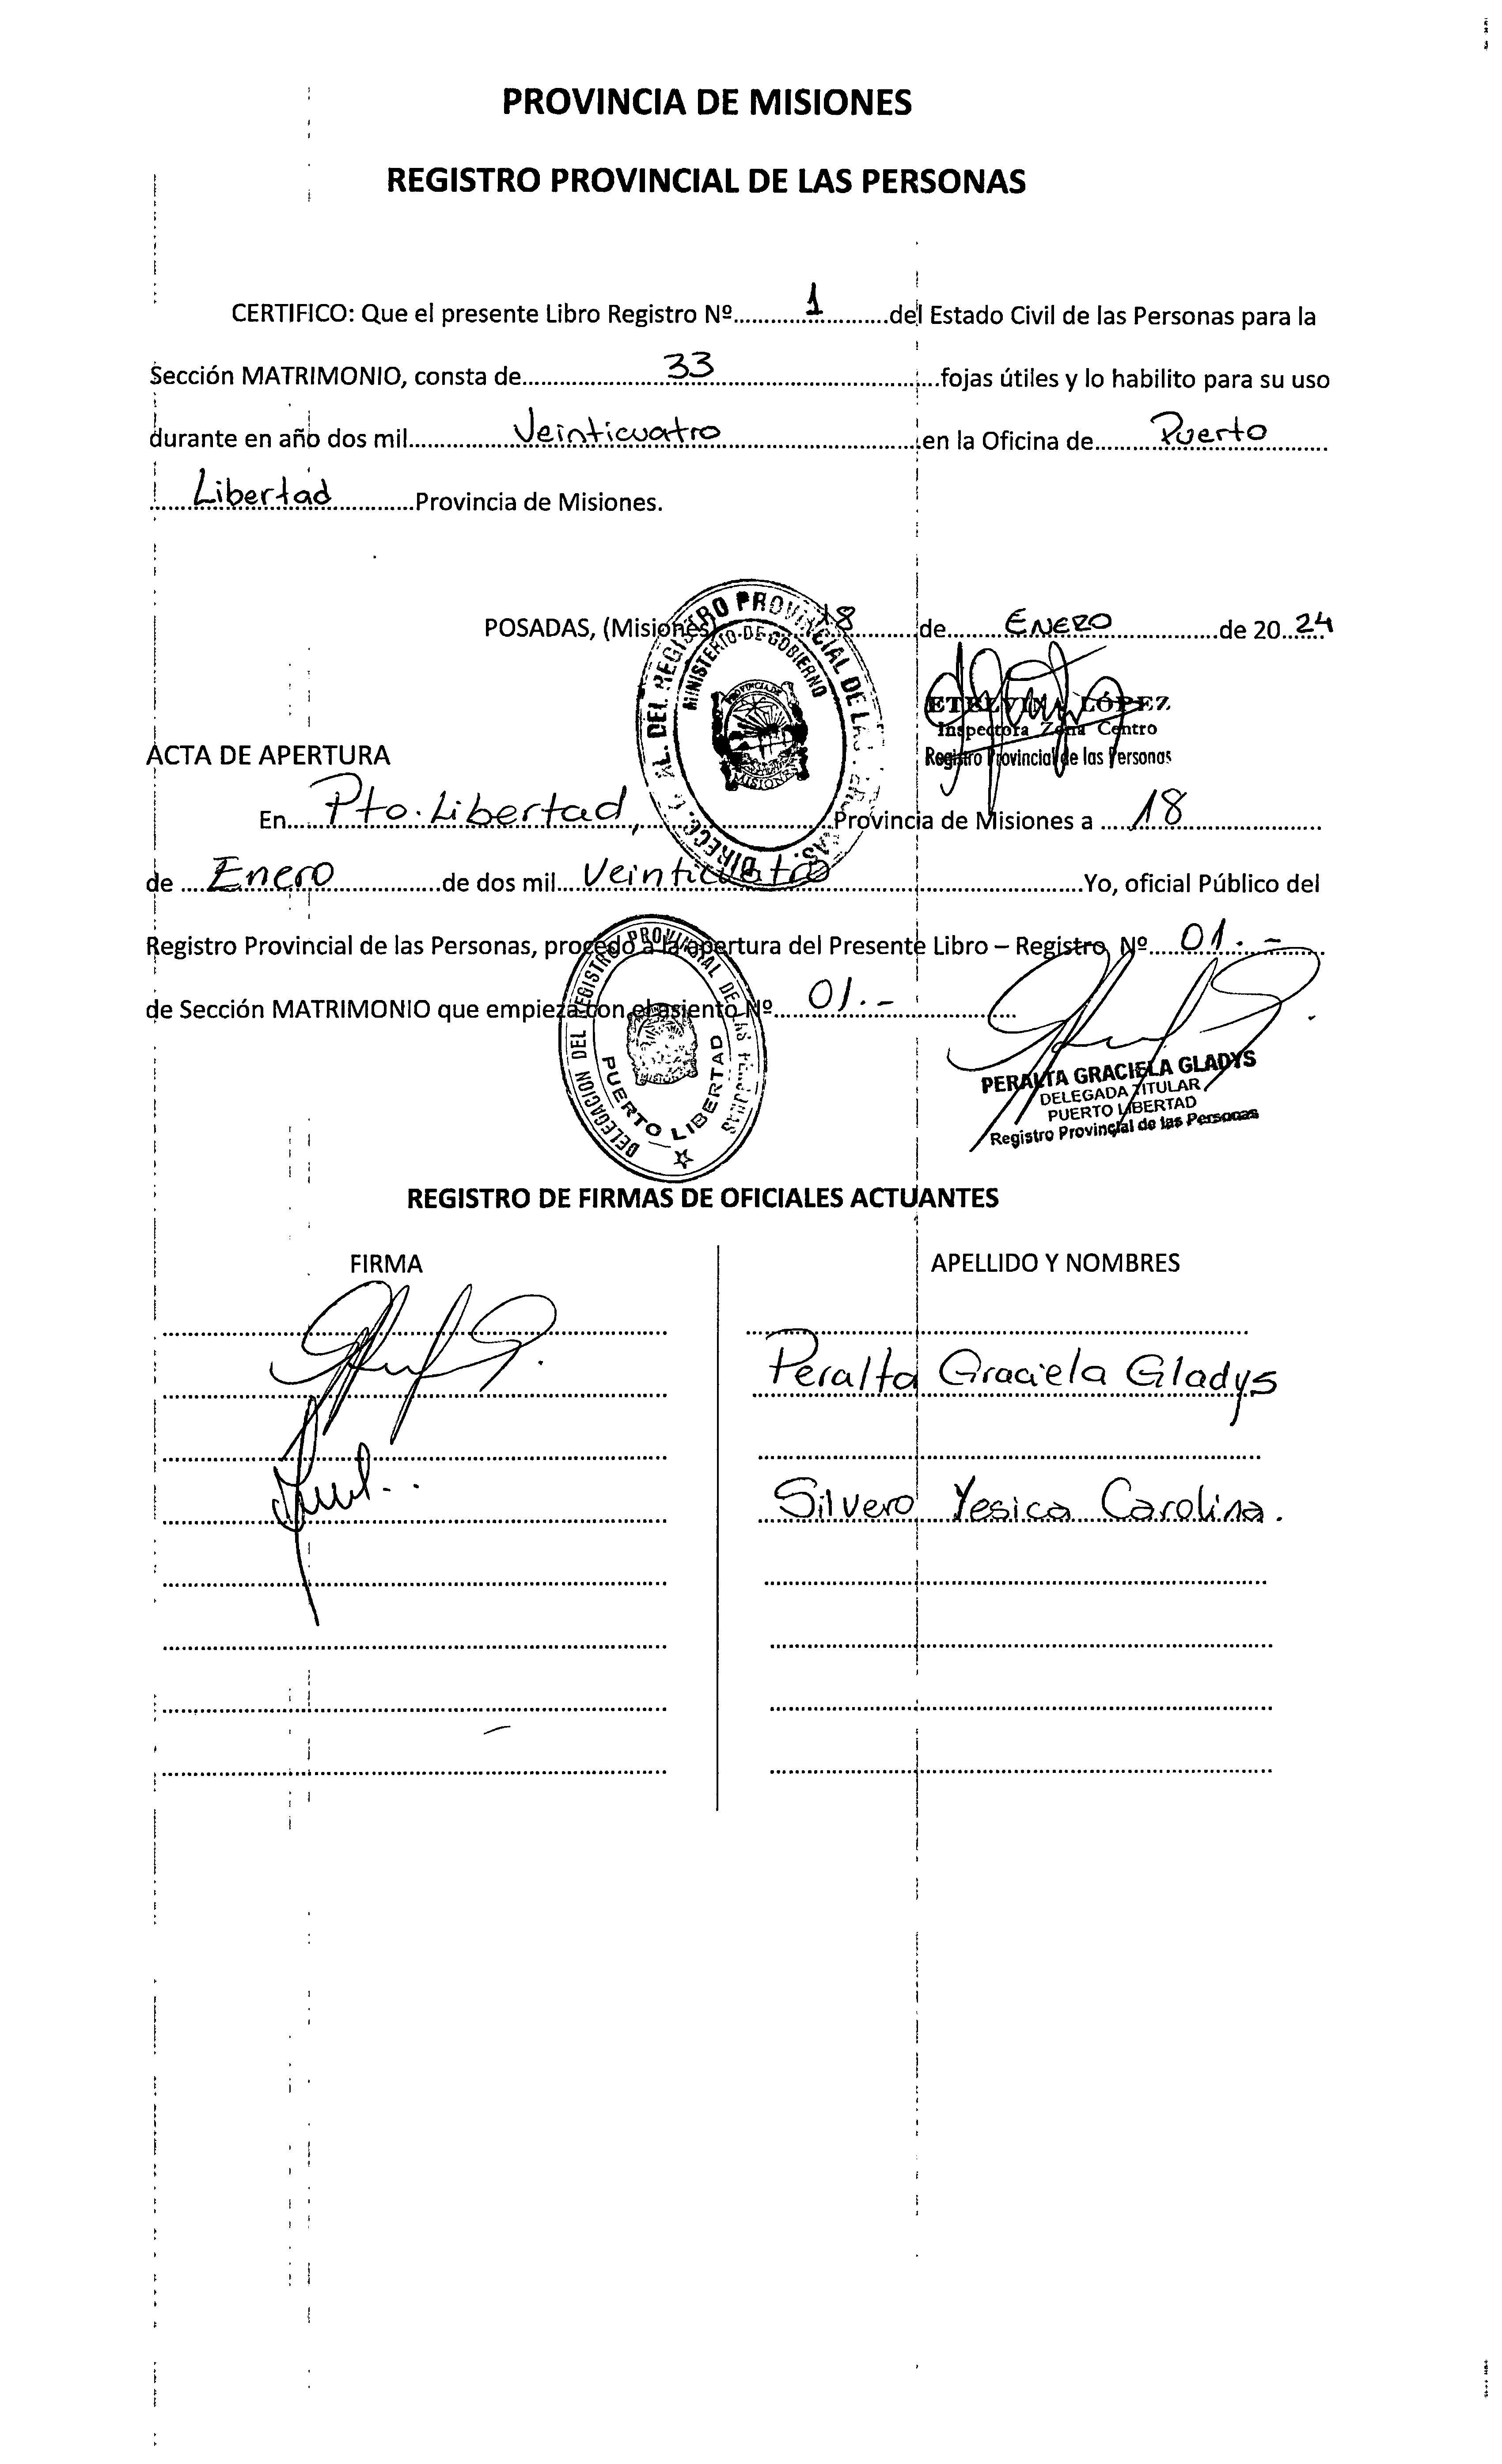 PROVINCIA DE MISIONES
REGISTRO PROVINCIAL DE LAS PERSONAS
CERTIFICO: Que el presente Libro Registro Nº 1 del Estado Civil de las Personas para la
Sección MATRIMONIO, consta de 33 fojas útiles y lo habilito para su uso
durante en año dos mil Veinticuatro en la Oficina de Puerto
Libertad Provincia de Misiones.
POSADAS, (Misiones) 18 de ENERO de 2024
DIRECC. DEL REGISTRO PROVINCIAL DE LAS
MINISTERIO DE GOBIERNO
PROVINCIA DE
MISIONES
ETELVINA LÓPEZ
Inspectora Zona Centro
Registro Provincial de las Personas
ACTA DE APERTURA
En Pto. Libertad, Provincia de Misiones a 18
de Enero de dos mil Veinticuatro Yo, oficial Público del
Registro Provincial de las Personas, procedo a la apertura del Presente Libro – Registro Nº 01.-
de Sección MATRIMONIO que empieza con el asiento Nº 01.-
DELEGACION DEL REGISTRO PROVINCIAL DE LAS PERSONAS
PUERTO LIBERTAD
PERALTA GRACIELA GLADYS
DELEGADA TITULAR
PUERTO LIBERTAD
Registro Provincial de las Personas
REGISTRO DE FIRMAS DE OFICIALES ACTUANTES
FIRMA APELLIDO Y NOMBRES
Peralta Graciela Gladys
Silvero Yesica Carolina.